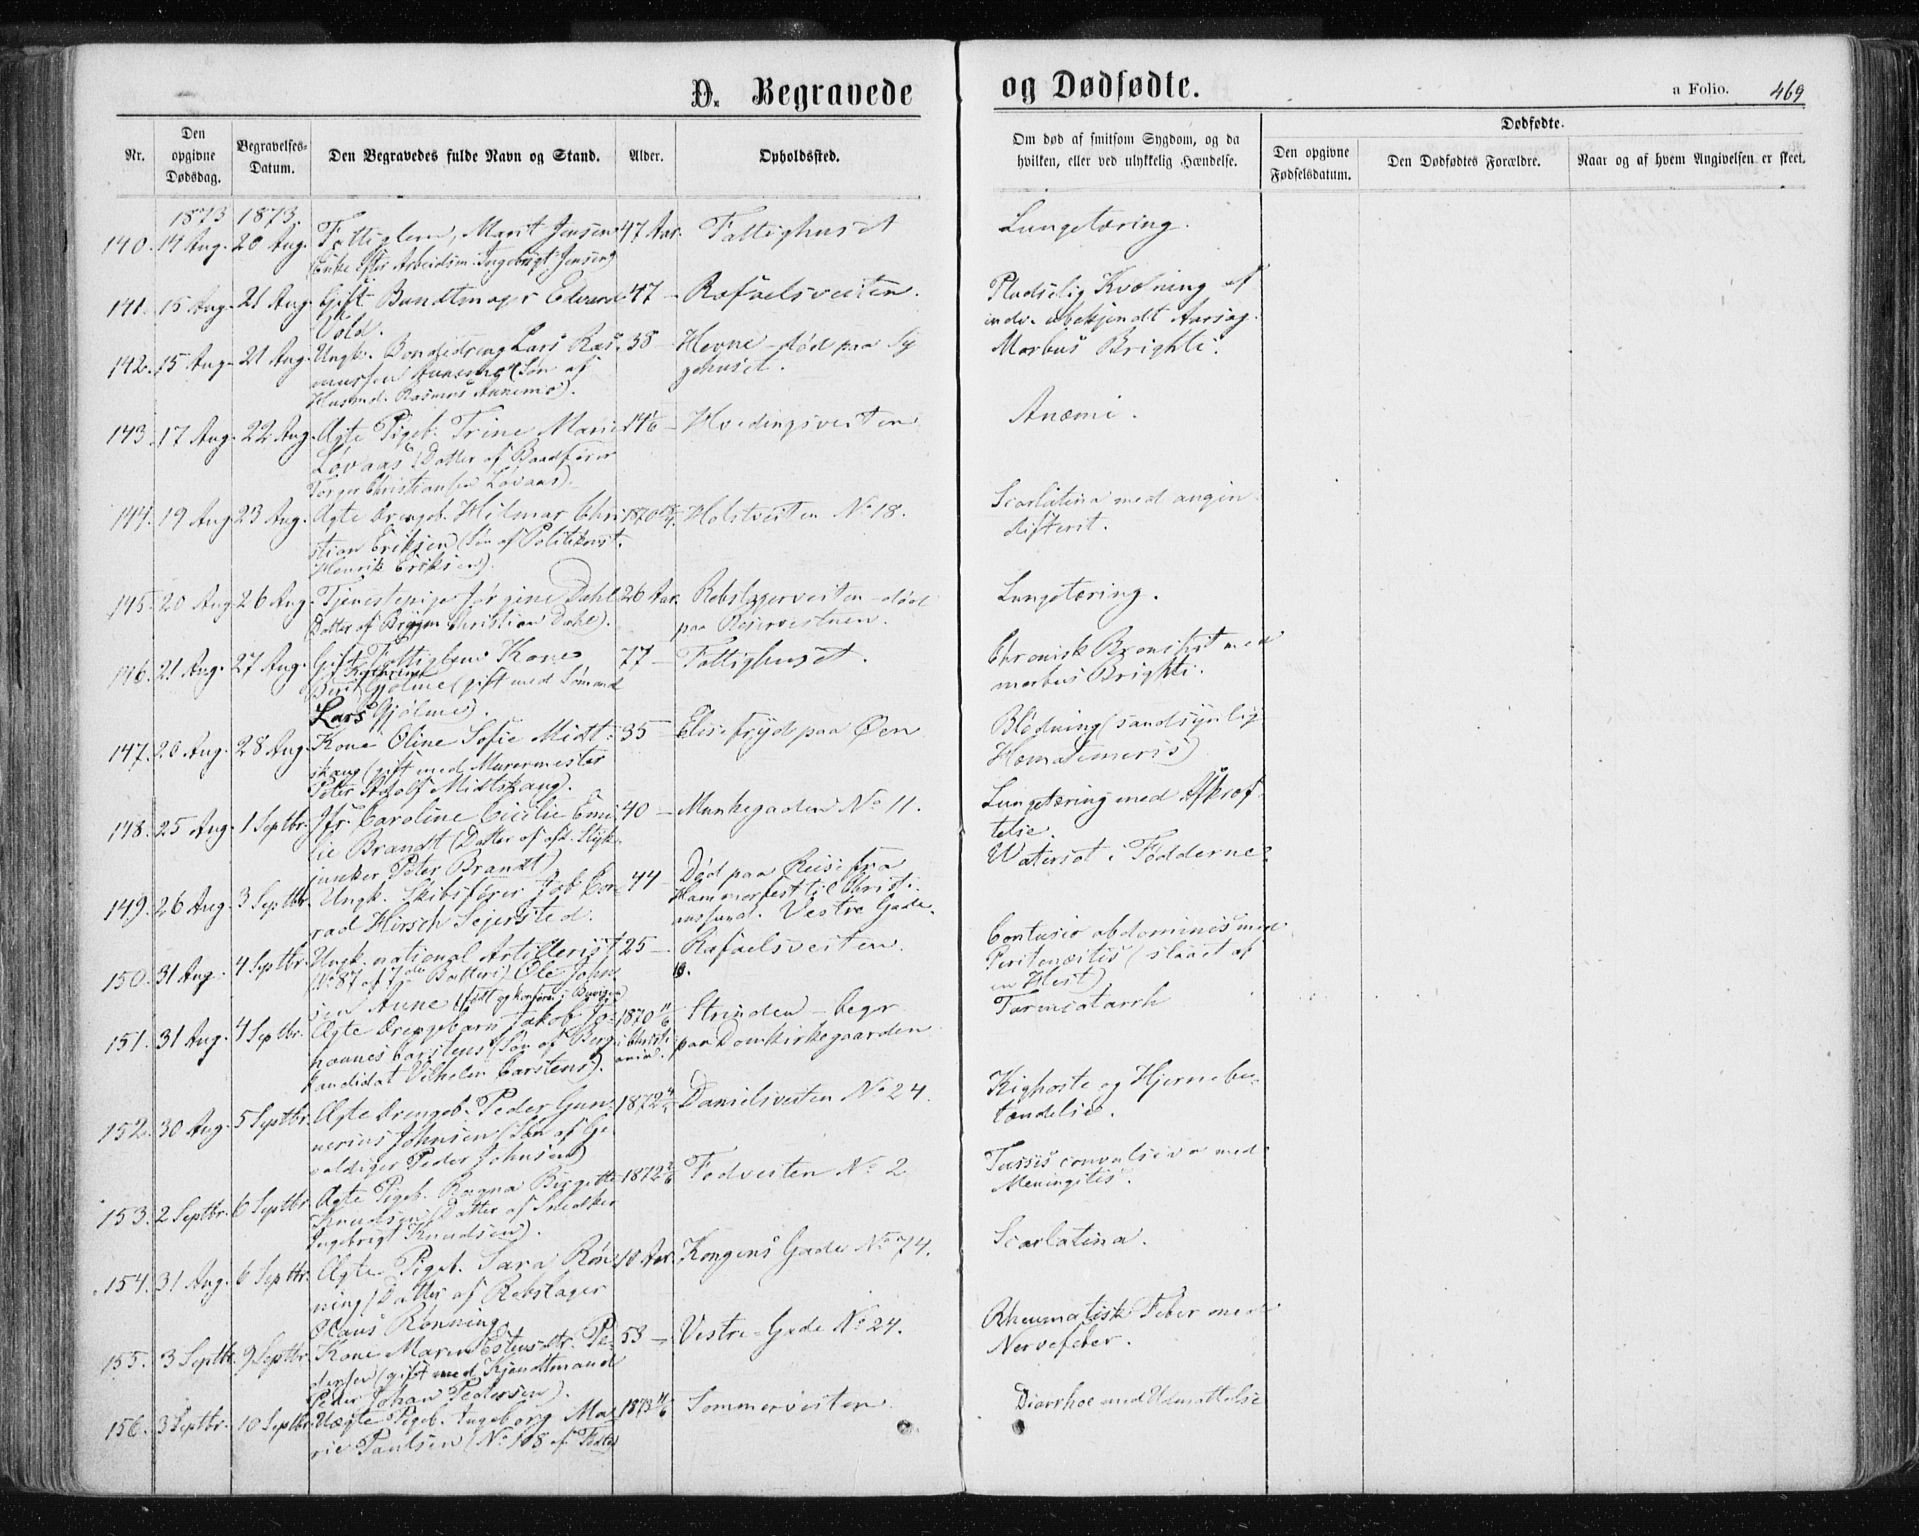 D. Begravede
og Dødfødte.
a Folio. 469
Nr.
Den opgivne Dødsdag.
Begravelses-Datum.
Den Begravedes fulde Navn og Stand.
Alder.
Opholdssted.
Om død af smitsom Sygdom, og da hvilken, eller ved ulykkelig Hændelse.
Dødfødte.
Den opgivne Fødselsdatum.
Den Dødfødtes Forældre.
Naar og af hvem Angivelsen er skeet.
1873 1873.
140. 14 Aug. 20 Aug. Fattiglem, Marit Jensen 47 Aar. Fattighuset Lungetæring.
(Enke efter Arbeidsm. Ingebrigt Jensen)
141. 15 Aug. 21 Aug. Gift Bundtmager Edvard 47 — Rafaelsveiten. Pludselig Kvælning af
Vold. indv. ubekjendt Aarsag.
142. 15 Aug. 21 Aug. Ungk. Bondedreng Lars Ras- 38 — Hevne - død paa Sy Morbus Brighti.
mussen Aunemo (Søn af gehuset.
Husmd. Rasmus Aunemo).
143. 17 Aug. 22 Aug. Ægte Pigeb. Trine Marie 14/6 — Hvedingsveiten Anæmi.
Løvaas (Datter af Baadfører
Torger Christiansen Løvaas).
144. 19 Aug. 23 Aug. Ægte Drengeb. Hilmar Chri 1870 Holstveiten No 18. Scarlatina med angin
stian Eriksen (Søn af Politikonst. difterit.
Henrik Eriksen).
145. 20 Aug. 26 Aug. Tjenestepige Jørgine Dahl 26 Aar. Rebslagerveiten - død Lungetæring.
(Datter af Christian Dahl). paa
146. 21 Aug. 27 Aug. Gift Fattiglem Kone 77 — Fattighuset. Chronisk Bronchit med
Berit Gjølme (gift med Sømand morbus Brighti.
Lars Gjølme).
147. 20 Aug. 28 Aug. Kone Oline Sofie Midt- 35 — Elisefryd paa Øen Blødning (sandsynlig
skaug (gift med Murermester Hæmatemesis)
Peter Adolf Midtskaug.
148. 25 Aug. 1 Septbr. Jfr. Caroline Cicilie Emi 40 — Munkegaden No 11. Lungetæring med Afkræf-
lie Brandt (Datter af afd. Styk telse.
junker Peter Brandt)
149. 26 Aug. 3 Septbr. Ungk. Skibsfører Jab Con- 44 — Død paa Reise fra Watersot i Fødderne.
rad Hirsch Sejersted. Hammerfest til Christi-
ansund. Vestre Gade.
150. 31 Aug. 4 Septbr. Ungk. national Artillerist 25 — Rafaelsveiten Contusio abdominis med
(No 87 af 7de Batteri) Ole John 10. Peritonitis (slaaet af
sen Aune (født og konfirm. i en Hest)
151. 31 Aug. 4 Septbr. Ægte Drengebarn Jakob Jo- 1870 11/6 Strinden - begr Tarmcatarrh
hannes Carstens (Søn af Berg- i Christi paa Domkirkegaarden
kandidat Vilhelm Carstens). ania.
152. 30 Aug. 5 Septbr. Ægte Drengeb. Peder Gun- 1872 Danielsveiten No 24. Kighoste og Hjernebe-
nerius Johnsen (Søn af Ge tændelse.
valdiger Peder Johnsen)
153. 2 Septbr. 6 Septbr. Ægte Pigeb. Ragna Birgitte 1872 Fodveiten No 2 Tussis convulsiva med
Knudsen (Datter af Snedker Meningitis.
Ingebrigt Knudsen).
154. 31 Aug. 6 Septbr. Ægte Pigeb. Sara Røn- 10 Aar. Kongens Gade No 74. Scarlatina.
ning (Datter af Rebslager
Claus Rønning
155. 3 Septbr. 9 Septbr. Kone Maren Estensdtr. Pe- 53 — Vestre Gade No 24. Rheumatisk Feber med
dersen (gift med Kjendtmand Nervefeber.
Peder Johan Pedersen).
156. 3 Septbr. 10 Septbr. Uægte Pigeb. Ingeborg Ma- 1873 Sommerveiten Diarrhoe med Udmattelse
rie Paulsen (No 108 af